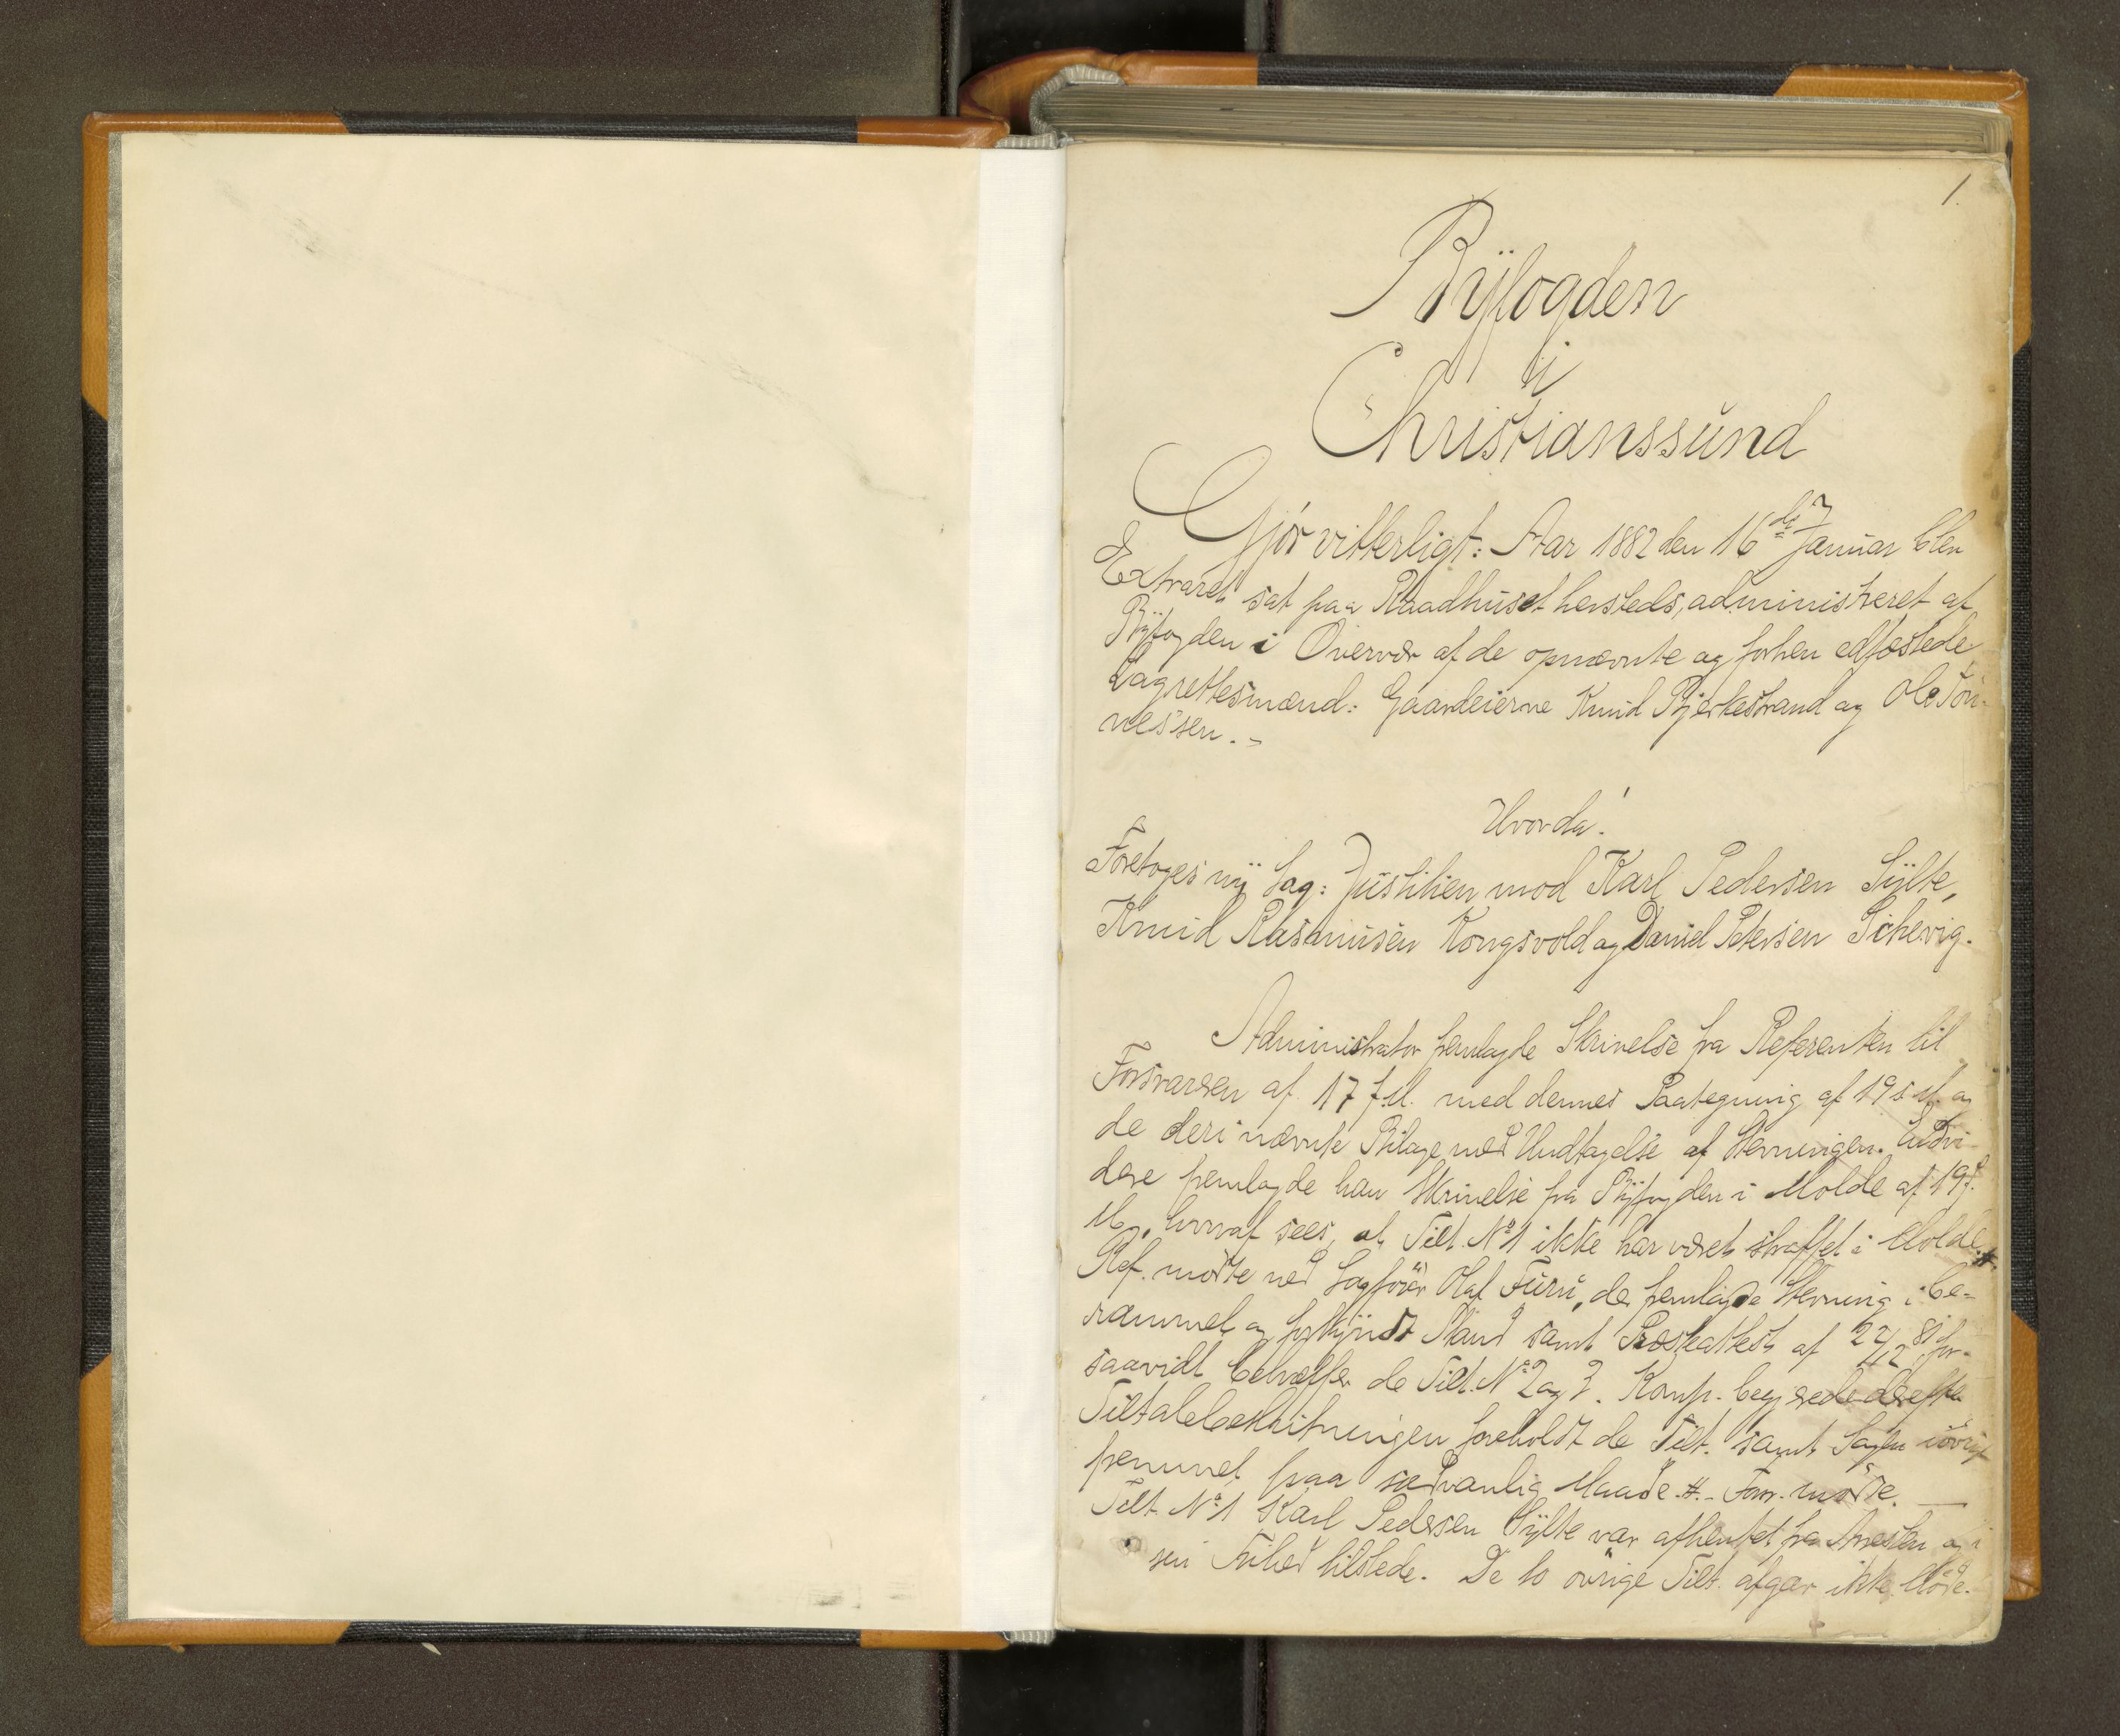 1.
Byfogden
i
Christianssund
Gjör vitterligt: Aar 1882 den 16de Januar blev
Extraret sat paa Raadhuset hersteds, administreret af
Byfogden i Overvær af de opnævnte og forhen edfæstede
Lagrettesmænd: Gaardeierne Knud Bjerkestrand og Ole Tön-
nessen.-
Hvorda!
Foretoges ny Sag: Justitien mod Karl Pedersen Sylte,
Knud Rasmusen Kongsvold og Daniel Petersen Schevig.
Administrator fremlagde Skrivelse fra Referenten til
Forsvareren af 17 f.M. med dennes Paategning af 19 s.M. og
de deri nævnte Bilage med Undtagelse af Stevningen. Endvi-
dere fremlagde han Skrivelse fra Byfogden i Molde af 19 f.
M., hvoraf sees, at Tilt. No 1 ikke har været straffet i Molde. #.
Ref. mödte ved Sagförer Olaf Furu, der fremlagde Stevning i be-
rammet og forkyndt Stand samt Præsteattest af 22/12 81 for-
saavidt betræffer de Tilt. No 2 og 3. Komp. begjærede derefter
Tiltalebeslutningen foreholdt de Tilt. samt Sagen iövrigt
fremmet paa sædvanlig Maade. #.- Forsv. mödte. —
Tilt. No 1 Karl Pedersen Sylte var afhentet fra Arresten og i
sin Frihed tilstede. De to övrige Tilt. afgav ikke Möde.